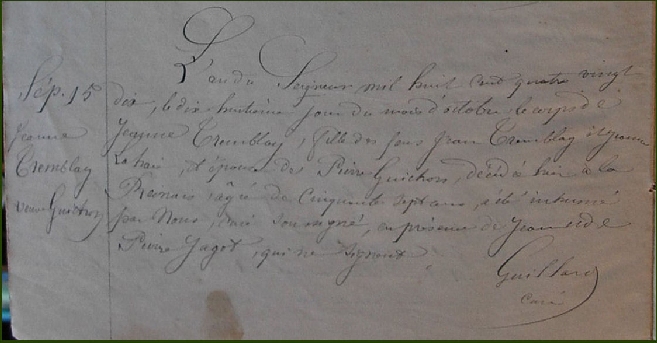 L'an du Seigneur mil huit cent quatre vingt
Sép. 15
dix, le dix huitième jour du mois d'octobre le corps de
Jeanne
Jeanne Tremblay, fille des feus Jean Tremblay et Jeanne
Tremblay
et épouse des Pierre Guichon, décédé à
veuve Guichon
âgée de Cinquante Sept ans, a été inhumé
par Nous, curé soussigné, en présence de Jean et de
Pierre Jagot, qui ne signent
Guillard
Curé